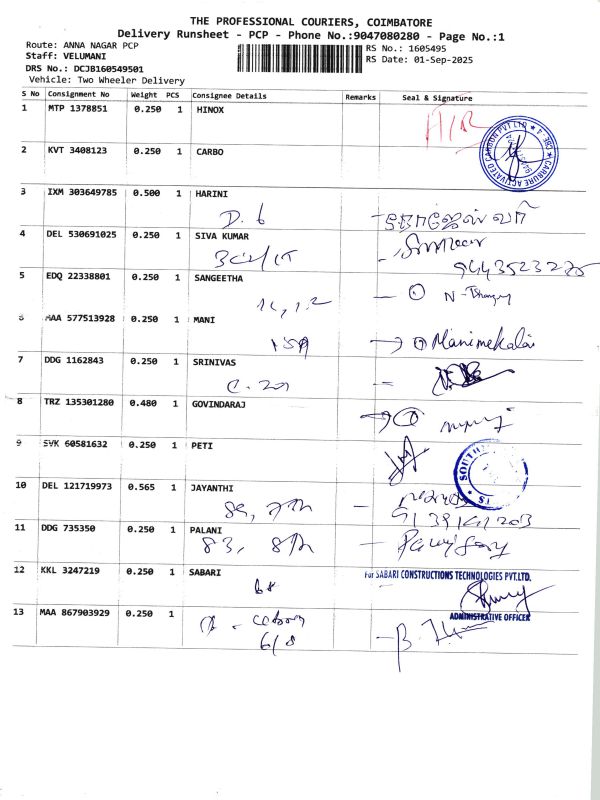 THE PROFESSIONAL COURIERS, COIMBATORE
Delivery Runsheet - PCP - Phone No.:9047080280 - Page No.:1
Route: ANNA NAGAR PCP
Staff: VELUMANI
DRS No.: DCJB160549501
Vehicle: Two Wheeler Delivery
RS No.: 1605495
RS Date: 01-Sep-2025
S No Consignment No Weight PCS Consignee Details Remarks Seal & Signature
1 MTP 1378851 0.250 1 HINOX
H/R
CARBURE ACTIVATED CARBON PVT LTD
2 KVT 3408123 0.250 1 CARBO
3 IXM 303649785 0.500 1 HARINI
D. 6
4 DEL 530691025 0.250 1 SIVA KUMAR
5 EDQ 22338801 0.250 1 SANGEETHA
6 MAA 577513928 0.250 1 MANI
Manimekalai
7 DDG 1162843 0.250 1 SRINIVAS
8 TRZ 135301280 0.480 1 GOVINDARAJ
9 SVK 60581632 0.250 1 PETI
10 DEL 121719973 0.565 1 JAYANTHI
11 DDG 735350 0.250 1 PALANI
83, 8th
12 KKL 3247219 0.250 1 SABARI
68
For SABARI CONSTRUCTIONS TECHNOLOGIES PVT.LTD.
ADMINISTRATIVE OFFICER
13 MAA 867903929 0.250 1
6/8